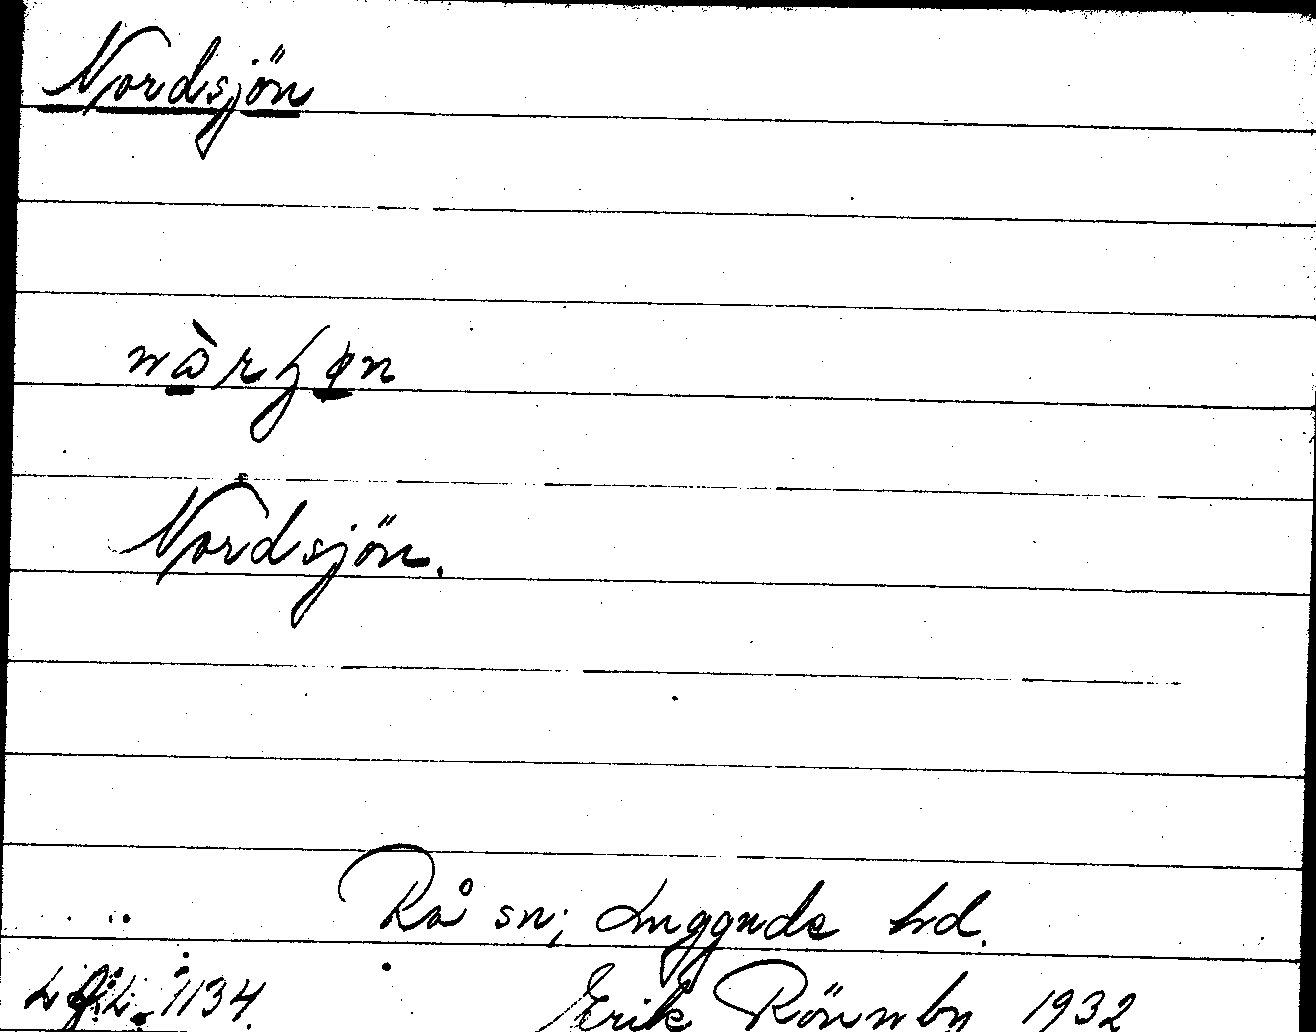 Nordsjön
Nordsjön.
Rå sn; Luggude hd.
1134.
Erik Rönnby 1932